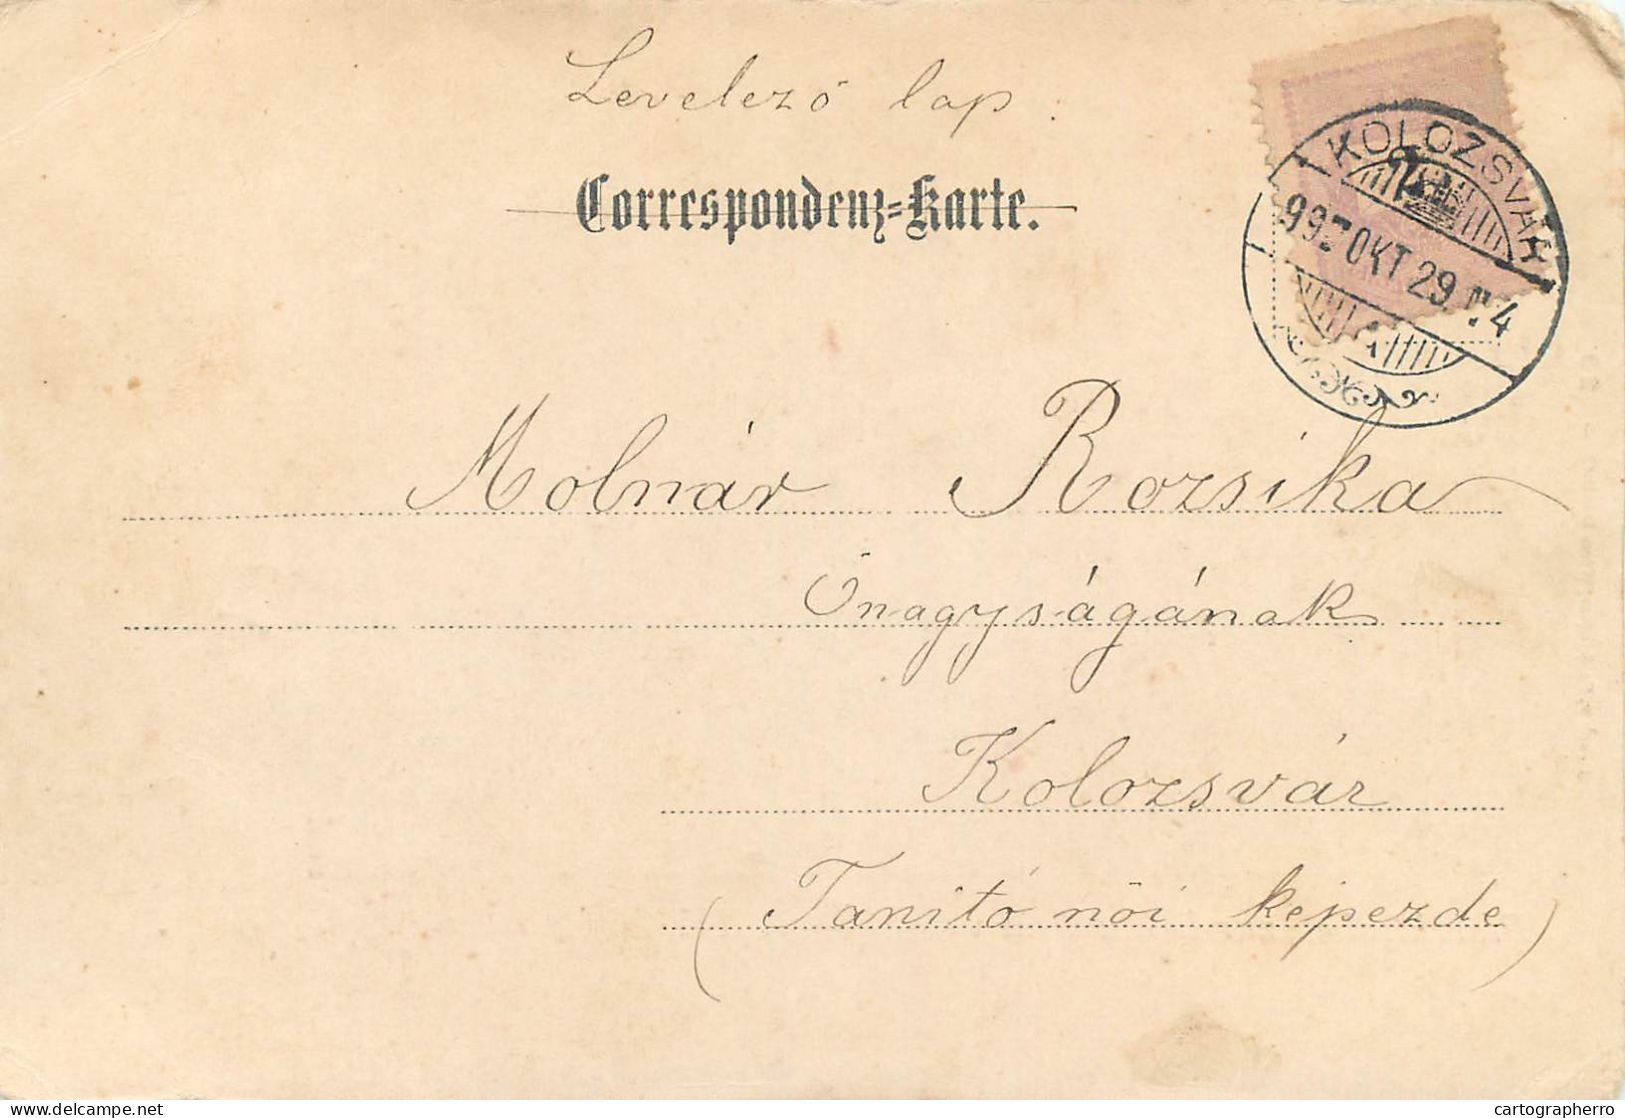 Levelező lap
Correspondenz-Karte.
KOLOZSVÁR
99 OKT 29 4
Molnár Rozsika
Őnagyságának
Kolozsvár
(Tanító női képezde)
cartographerro